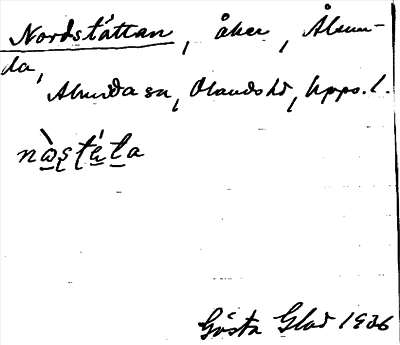 Nordståttan, åker, Ålun-
da,
Alunda sn, Olands hd, Upps. l.
nò̱ʂʈá̱ʈa
Gösta Glad 1936